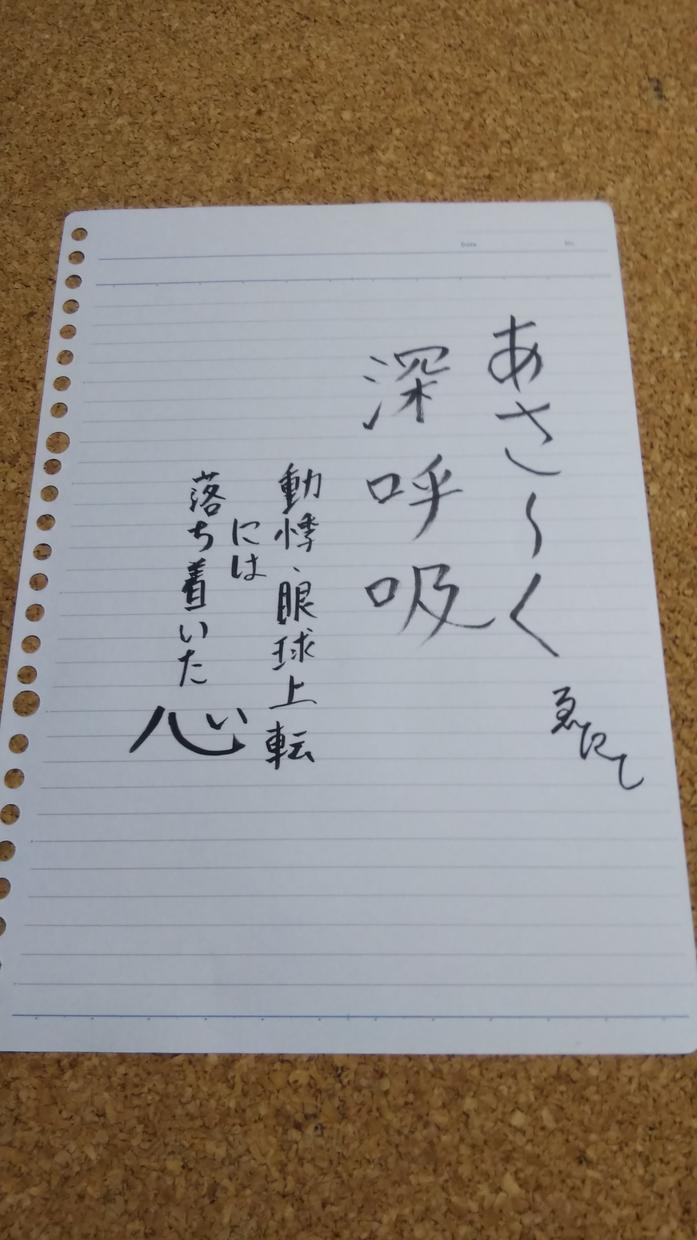 あさ〜く
深呼吸
動悸、眼球上転
には
落ち着いた心
Date
No.